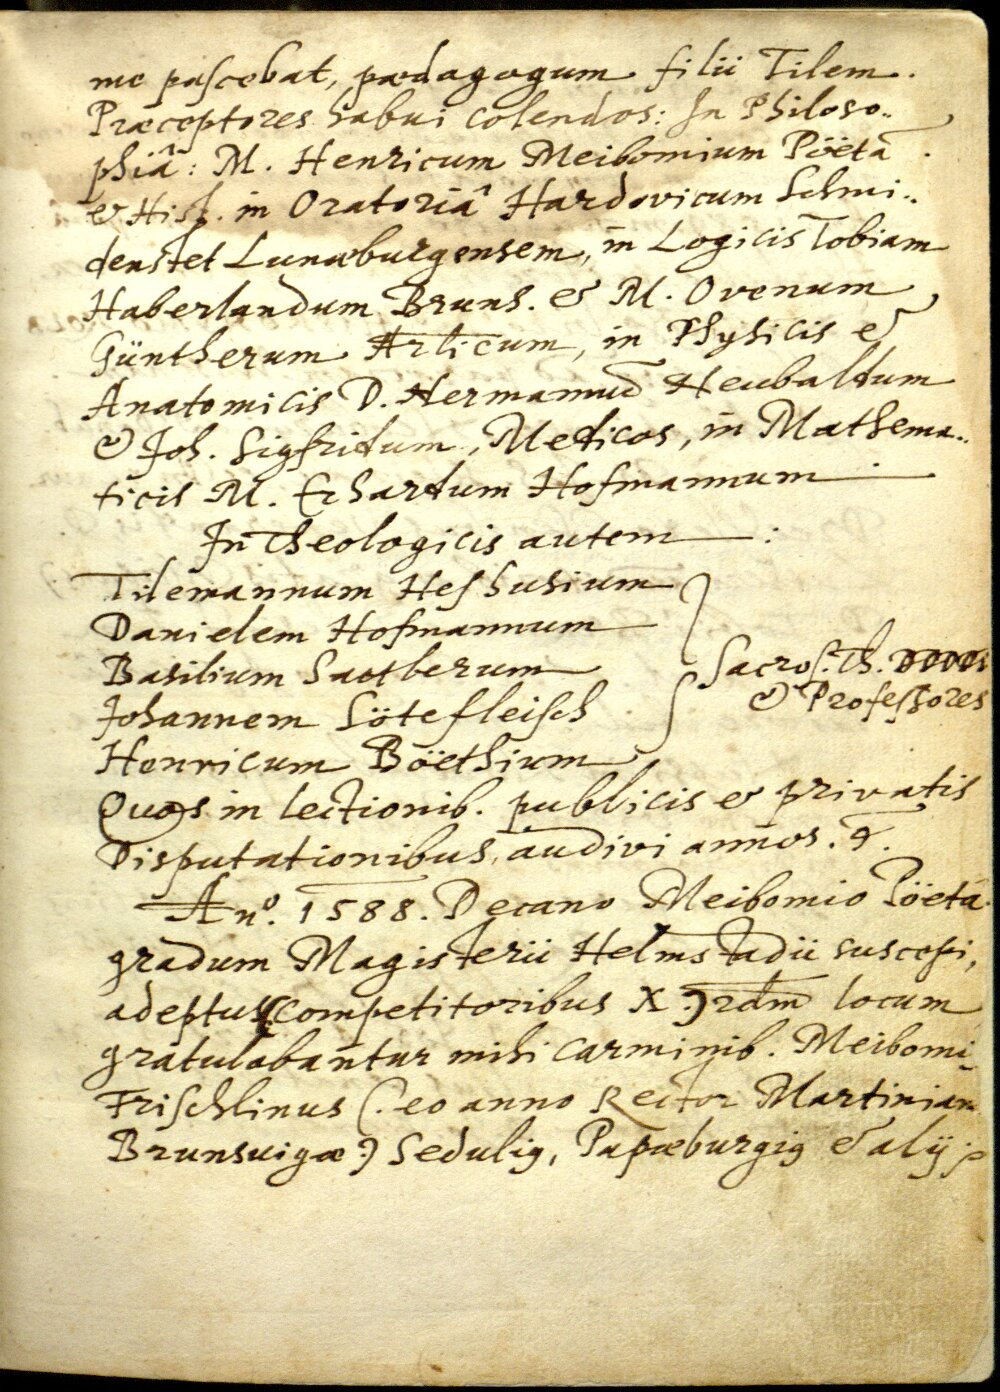 me pascebat, pædagogum filii Tilem.
Præceptores habui colendos: In Philoso..
phiâ: M. Henricum Meibomium Pöetã.
& Hist. in Oratoriâ Hardovicum Schmi..
denstet Lunæburgensem, in Logicis Tobiam
Haberlandum Bruns. & M. Ovenum
Güntherum Arlicum, in Physicis &
Anatomicis D. Hermannũ Neubaldum
& Joh. Sigfridum, Medicos, in Mathema..
ticis M. Erhardum Hofmannum
In Theologicis autem :
Tilemannum Heshusium
Danielem Hofmannum
Basilium Satlberum
Sacros. Th. DDDD
Johannem Sötefleisch
& Professores
Henricum Böethium
Quos in lectionib. publicis & privatis
Disputationibus, audivi annos. 4.
Anº. 1588. Decano Meibomio Pöeta.
gradum Magisterii Helmstadii suscepi,
adeptus (competitoribus X :) locum
gratulabantur mihi carminib. Meibomi
Frischlinus (: eo anno Rector Martinian
Brunsvigæ :) Sedulig, Papæburgig & alij